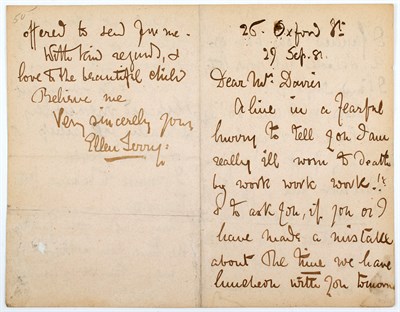 26. Oxford St
29 Sep. 81.
Dear Mrs Davis
A line in a fearful
hurry to tell you I am
really ill worn to death
by work work work!!
& to ask you, if you or I
have made a mistake
about the time we have
luncheon with you tomorrow
offered to send for me.
With kind regards, &
love to the beautiful child
Believe me
Very sincerely yours
Ellen Terry: